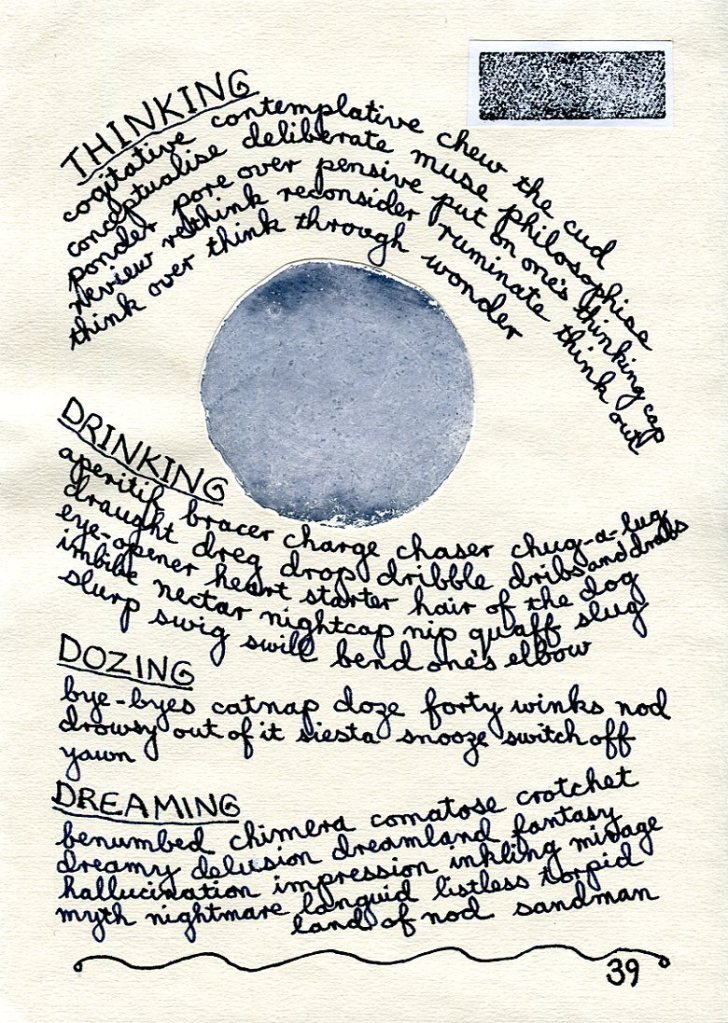 THINKING
cogitative contemplative chew the cud
conceptualise deliberate muse philosophise
ponder pore over pensive put on one's thinking cap
review rethink reconsider ruminate think out
think over think through wonder
DRINKING
aperitif bracer charge chaser chug-a-lug
draught dreg drop dribble dribs and drabs
eye-opener heart starter hair of the dog
imbibe nectar nightcap nip quaff slug
slurp swig swill bend one's elbow
DOZING
bye-byes catnap doze forty winks nod
drowsy out of it siesta snooze switch off
yawn
DREAMING
benumbed chimera comatose crotchet
dreamy delusion dreamland fantasy
hallucination impression inkling mirage
myth nightmare languid listless torpid
land of nod sandman
39